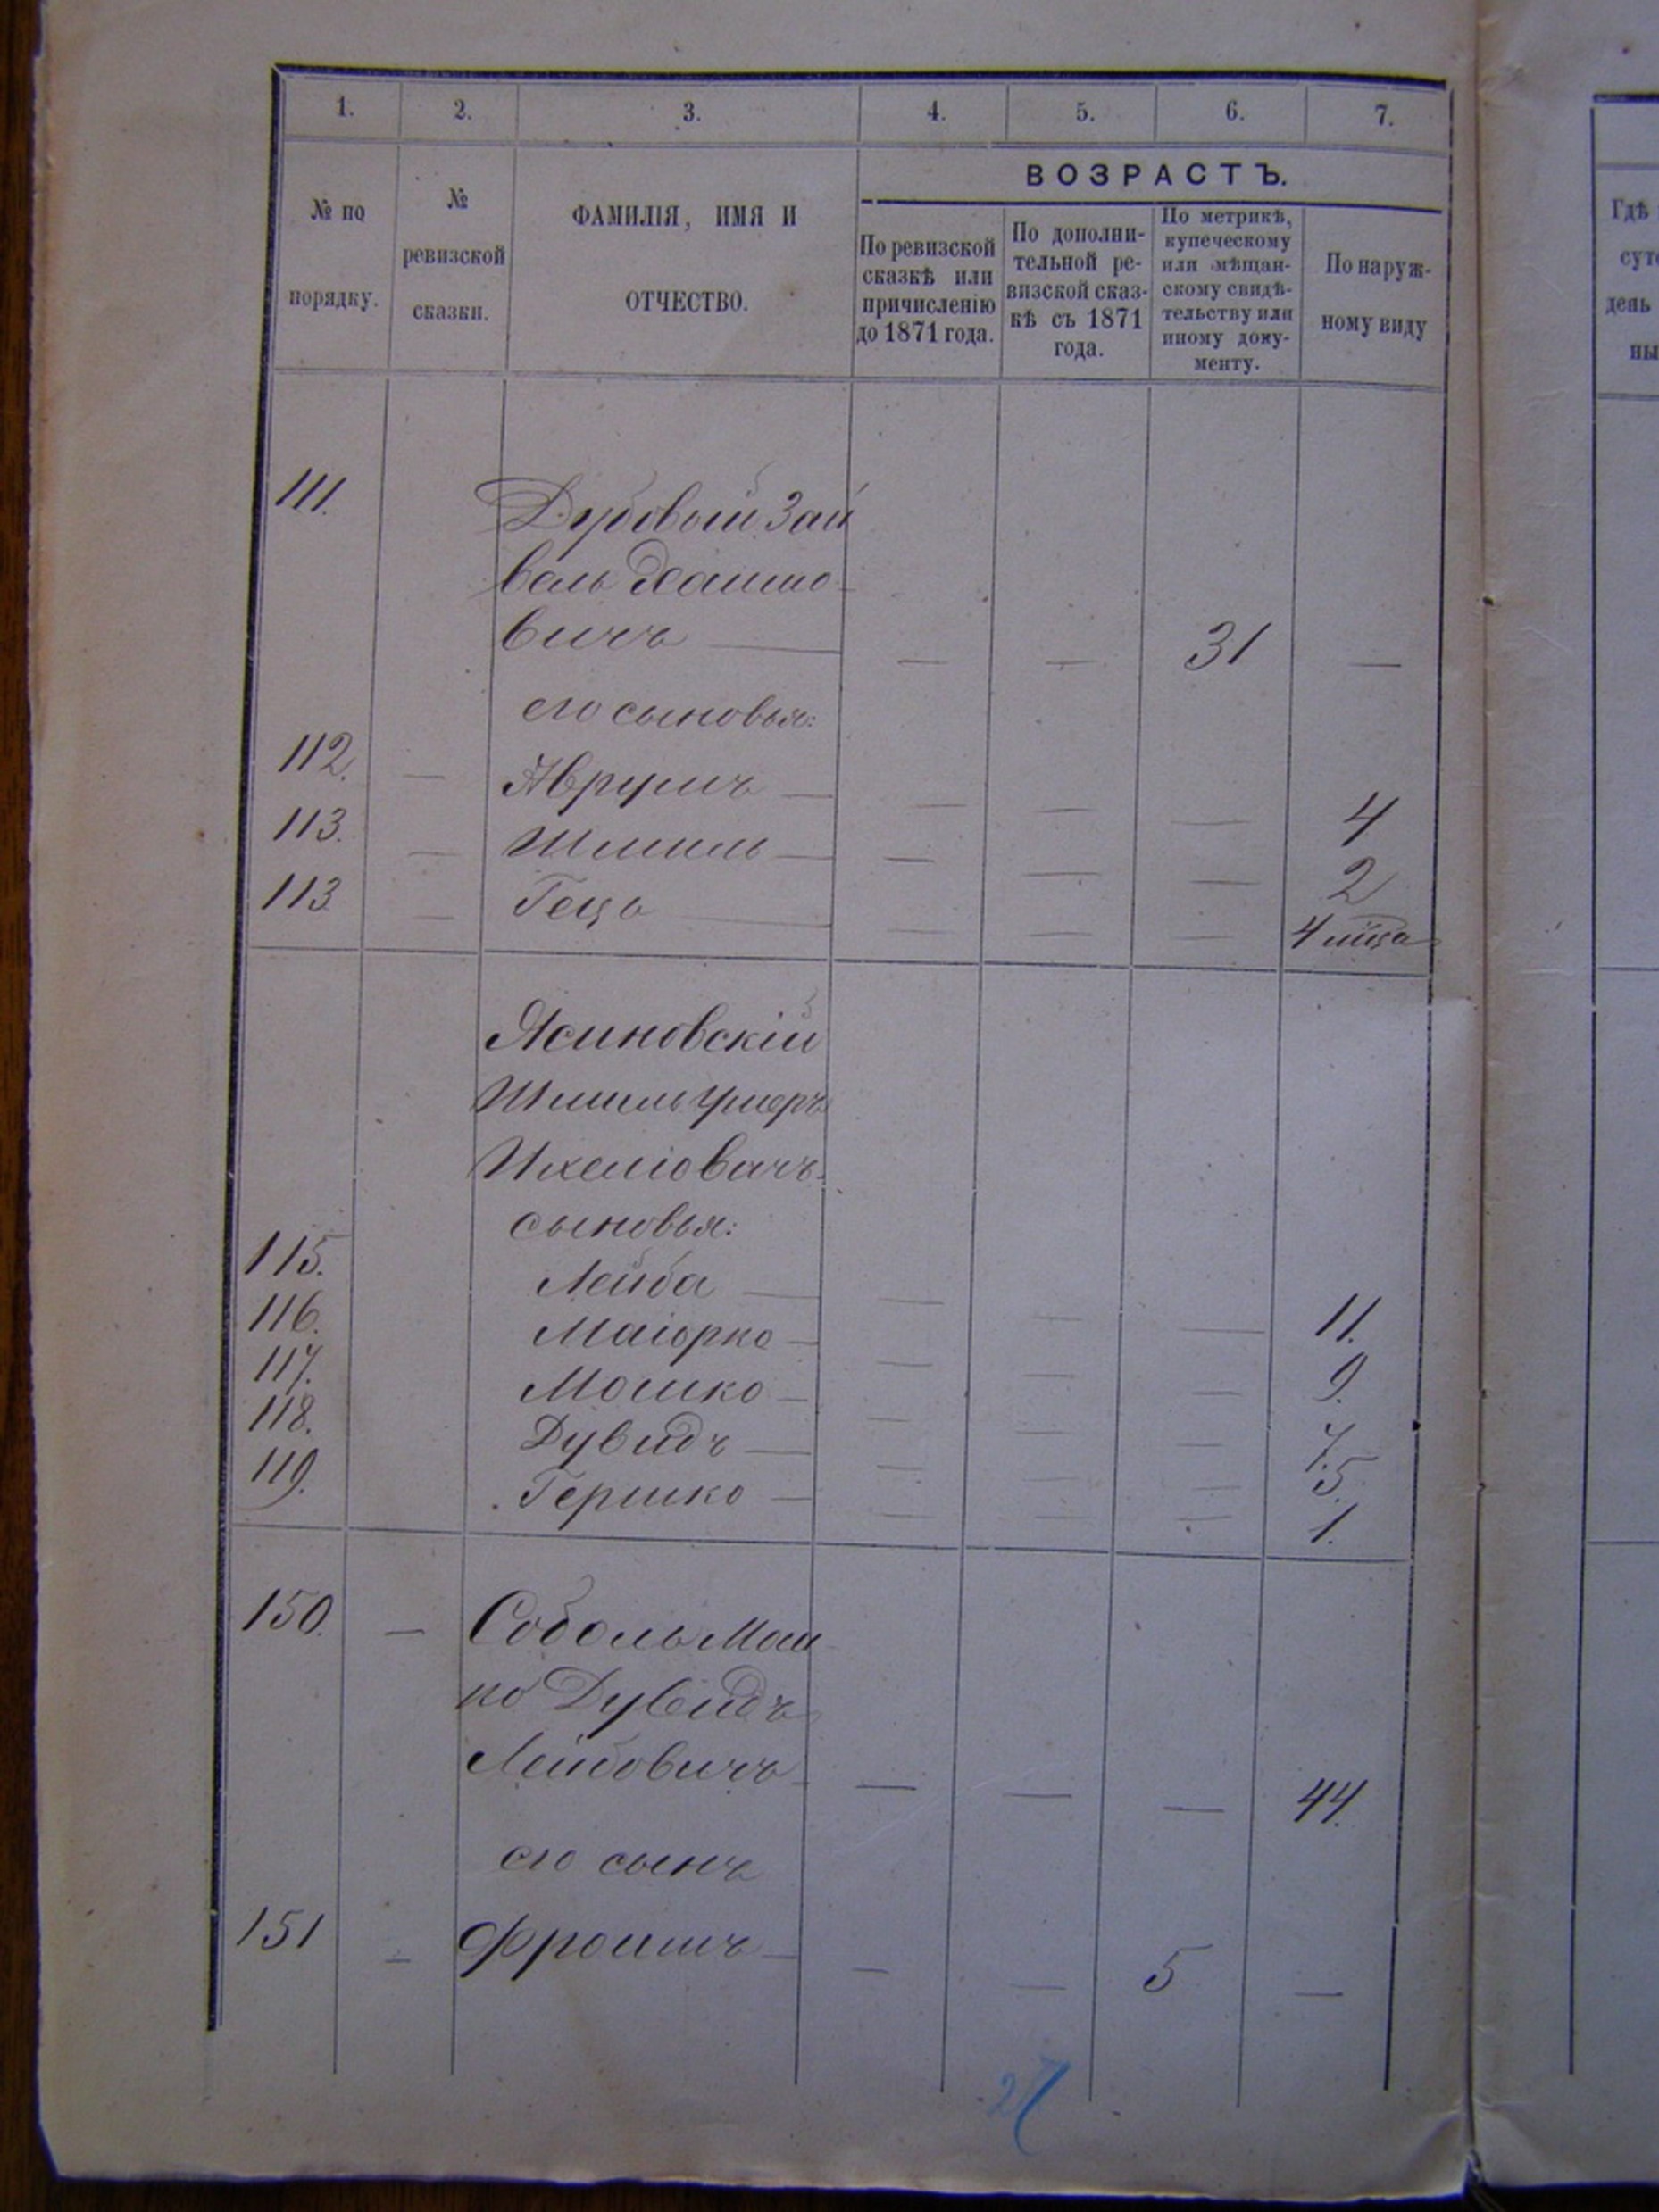 1. 2. 3. 4. 5. 6. 7.
ВОЗРАСТЪ.
№ по
порядку.
№
ревизской
сказки.
ФАМИЛІЯ, ИМЯ И
ОТЧЕСТВО.
По ревизской
сказкѣ или
причисленію
до 1871 года.
По дополни-
тельной ре-
визской сказ-
кѣ съ 1871
года.
По метрикѣ,
купеческому
или мѣщан-
скому свидѣ-
тельству или
иному доку-
менту.
По наруж-
ному виду
Гдѣ
сут
день
ны
111. Дубовый Зай
вель Хаимо-
вичъ — — — 31 —
его сыновья:
112. — Аврумъ — — — — 4
113. — Шмиль — — — — 2
113 — Гецъ — — — — 4 мѣца
Ясиновскій
Шмиль Ушеръ
Ихеліовичъ
сыновья:
115. Лейба — — — — 11.
116. Маіорко — — — — 9.
117. Мошко — — — — 7.
118. Дувидъ — — — — 5.
119. Гершко — — — — 1.
150. — Соболь Мош
ко Дувидъ
Лейбовичъ — — — 44.
его сынъ
151 — Фроимъ — — — 5 —
27